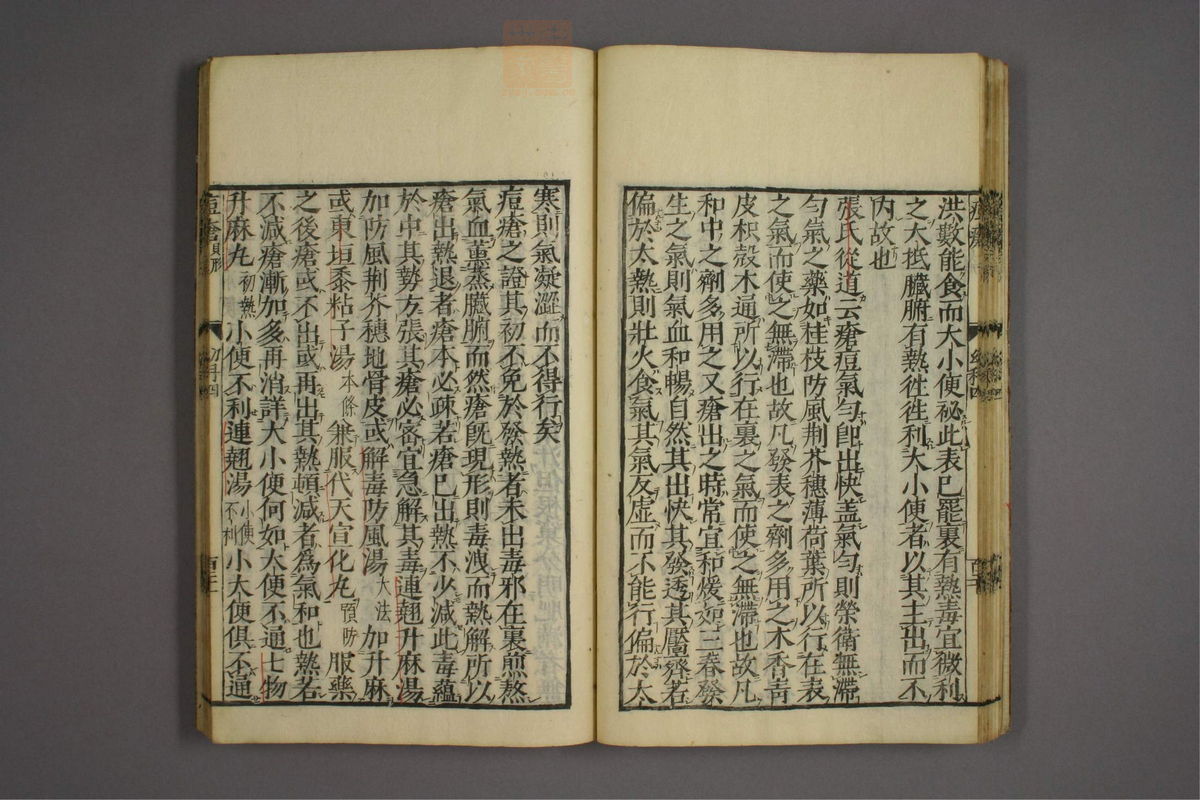 洪數能食而大小便祕此表巳罷裏有熱毒宜微利
之大抵臟腑有熱徃徃利大小便者以其主出而不
内故也
張氏從道云瘡痘氣勻卽出快盖氣勻則榮衛無滯
勻氣之藥如桂枝防風荆芥穗薄荷葉所以行在表
之氣而使之無滯也故凡發表之劑多用之木香靑
皮枳殻木通所以行在裏之氣而使之無滯也故凡
和中之劑多用之又瘡出之時常宜和緩如三春發
生之氣則氣血和暢自然其出快其發透其靨齊若
偏於太熱則壯火食氣其氣反虛而不能行偏於太
寒則氣凝澀而不得行矣
痘瘡之證其初不免於發熱者未出毒邪在裏煎熬
氣血薰蒸臟腑而然瘡旣現形則毒洩而熱解所以
瘡出熱退者瘡本必疎若瘡巳出熱不少減此毒蘊
於中其勢方張其瘡必密宜急解其毒連翹升麻湯
加防風荆芥穗地骨皮或解毒防風湯大法加升麻
或東垣黍粘子湯本條兼服代天宣化丸預防服藥
之後瘡或不出或再出其熱頓減者爲氣和也熱若
不減瘡漸加多再消詳大小便何如大便不通七物
升麻丸初熱小便不利連翹湯小便不利小大便俱不通
痘瘡見形 幼科四